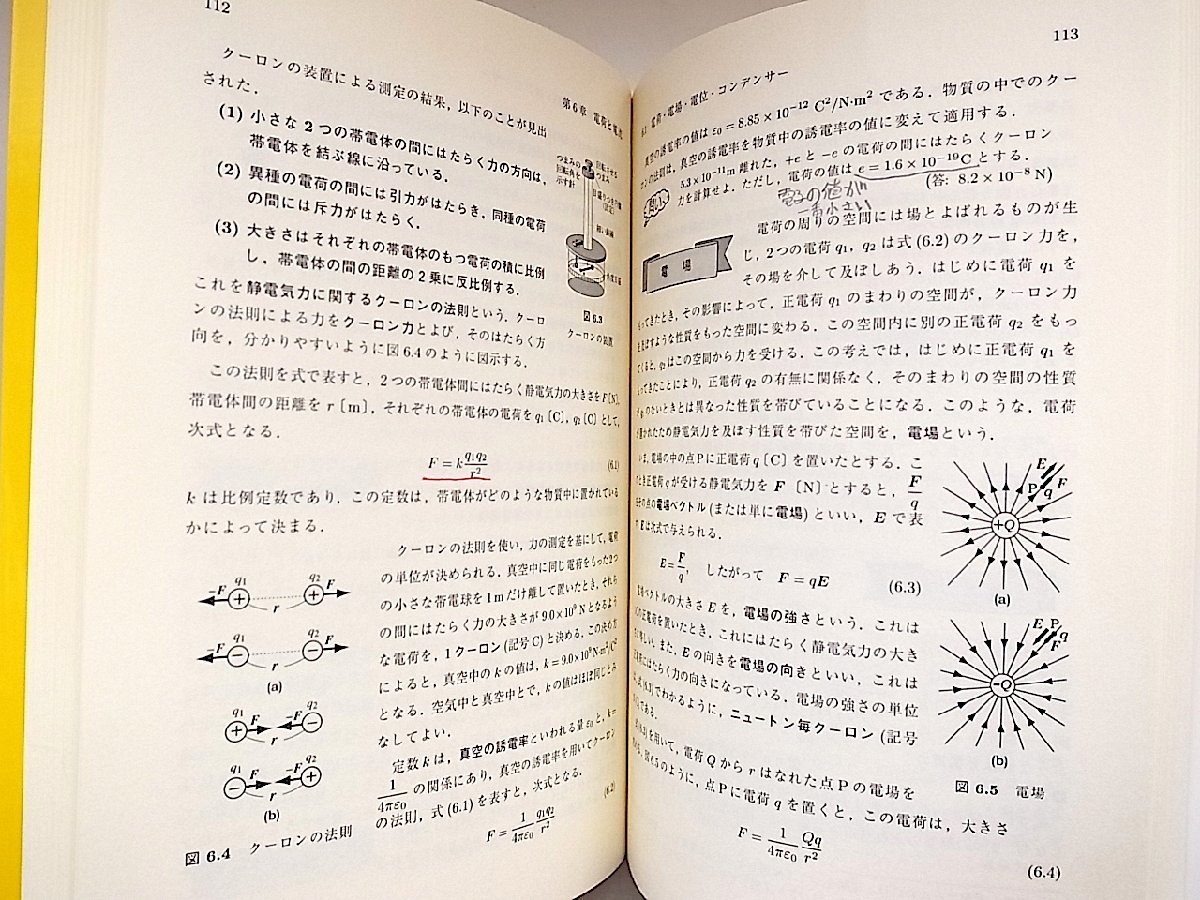 112
第6章 電荷と電流
クーロンの装置による測定の結果，以下のことが見出
された．
(1) 小さな2つの帯電体の間にはたらく力の方向は，
帯電体を結ぶ線に沿っている．
(2) 異種の電荷の間には引力がはたらき，同種の電荷
の間には斥力がはたらく．
(3) 大きさはそれぞれの帯電体のもつ電荷の積に比例
し，帯電体の間の距離の2乗に反比例する．
これを静電気力に関するクーロンの法則という．クーロ
ンの法則による力をクーロン力とよび，そのはたらく方
向を，分かりやすいように図6.4のように図示する．
つまみの
回転角を
示す針
回転させる
つまみ
図6.3
クーロンの装置
この法則を式で表すと，2つの帯電体間にはたらく静電気力の大きさをF〔N〕，
帯電体間の距離をr〔m〕，それぞれの帯電体の電荷をq₁〔C〕，q₂〔C〕として，
次式となる．
F = k q₁q₂/r² (6.1)
kは比例定数であり，この定数は，帯電体がどのような物質中に置かれている
かによって決まる．
クーロンの法則を使い，力の測定を基にして，電荷
の単位が決められる．真空中に同じ電荷をもった2つ
の小さな帯電球を1mだけ離して置いたとき，それら
の間にはたらく力の大きさが9.0×10⁹Nとなるよう
な電荷を，1クーロン(記号C)と決める．この決め方
によると，真空中のkの値は，k=9.0×10⁹N·m²/C²
となる．空気中と真空中とで，kの値はほぼ同じとみ
なしてよい．
定数kは，真空の誘電率といわれる量ε₀と，k=
1/4πε₀ の関係にあり，真空の誘電率を用いてクーロン
の法則，式(6.1)を表すと，次式となる．
F = 1/4πε₀ q₁q₂/r² (6.2)
-F q₁ + r q₂ + F
-F q₁ − r q₂ − F
(a)
q₁ + F r -F q₂ −
q₁ − F r -F q₂ +
(b)
図6.4 クーロンの法則
113
6.1 電荷・電場・電位・コンデンサー
真空の誘電率の値はε₀=8.85×10⁻¹² C²/N·m² である．物質の中でのクー
ロンの法則は，真空の誘電率を物質中の誘電率の値に変えて適用する．
問1
5.3×10⁻¹¹m離れた，+eと−eの電荷の間にはたらくクーロン
力を計算せよ．ただし，電荷の値はe=1.6×10⁻¹⁹Cとする．
(答: 8.2×10⁻⁸N)
電子の値が
一番小さい
電場
電荷の周りの空間には場とよばれるものが生
じ，2つの電荷q₁，q₂は式(6.2)のクーロン力を，
その場を介して及ぼしあう．はじめに電荷q₁を
もってきたとき，その影響によって，正電荷q₁のまわりの空間が，クーロン力
を及ぼすような性質をもった空間に変わる．この空間内に別の正電荷q₂をもっ
てくると，q₂はこの空間から力を受ける．この考えでは，はじめに正電荷q₁を
もってきたことにより，正電荷q₂の有無に関係なく，そのまわりの空間の性質
がq₁のないときとは異なった性質を帯びていることになる．このような，電荷
が置かれたため静電気力を及ぼす性質を帯びた空間を，電場という．
いま，電場の中の点Pに正電荷q〔C〕を置いたとする．こ
のとき正電荷qが受ける静電気力をF〔N〕とすると，F/q
をその点の電場ベクトル(または単に電場)といい，Eで表
す．Eは次式で与えられる．
E=F/q, したがって F=qE (6.3)
電場ベクトルの大きさEを，電場の強さという．これは
の正電荷を置いたとき，これにはたらく静電気力の大き
さに等しい．また，Eの向きを電場の向きといい，これは
にはたらく力の向きになっている．電場の強さの単位
は，式(6.3)でわかるように，ニュートン毎クーロン(記号
である．
を用いて，電荷Qからrはなれた点Pの電場を
図6.5のように，点Pに電荷qを置くと，この電荷は，大きさ
F = 1/4πε₀ Qq/r²
(6.4)
E P q F +Q
(a)
E P q F −Q
(b)
図6.5 電場